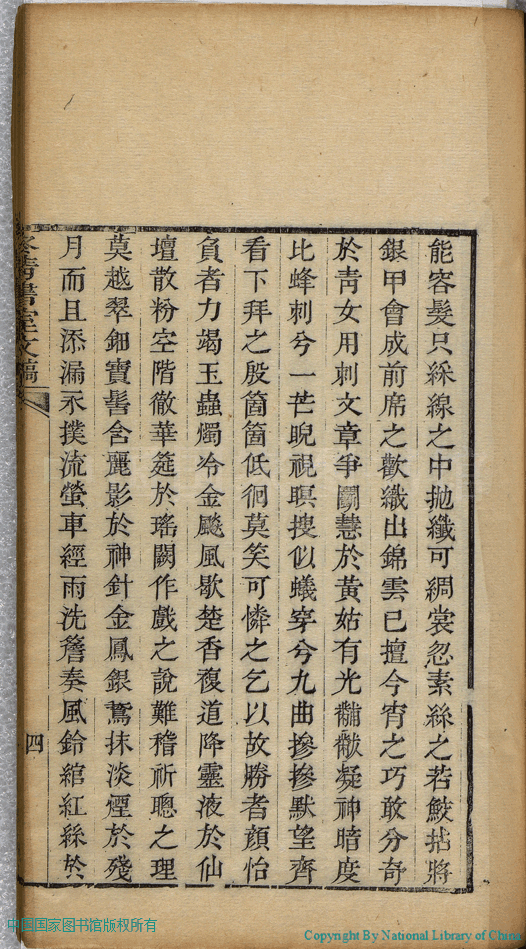 能容髮只綵線之中抛纖可綢裳忽素絲之若鮫拈將
銀甲會成前席之歡織出錦雲已擅今宵之巧敢分奇
於靑女用刺文章爭鬬慧於黃姑有光黼黻凝神暗度
比蜂刺兮一芒睨視暝搜似蟻穿兮九曲摻摻默望齊
看下拜之殷箇箇低徊莫笑可憐之乞以故勝者顏怡
負者力竭玉蟲燭冷金颷風歇楚香複道降靈液於仙
壇散粉空階徹華筵於瑤闕作戲之說難稽祈聰之理
莫越翠鈿寶髻含麗影於神針金鳳銀鵞抹淡煙於殘
月而且添漏永撲流螢車經雨洗簷奏風鈴綰紅絲於
書室文稿
四
中国国家图书馆版权所有
Copyright By National Library of China